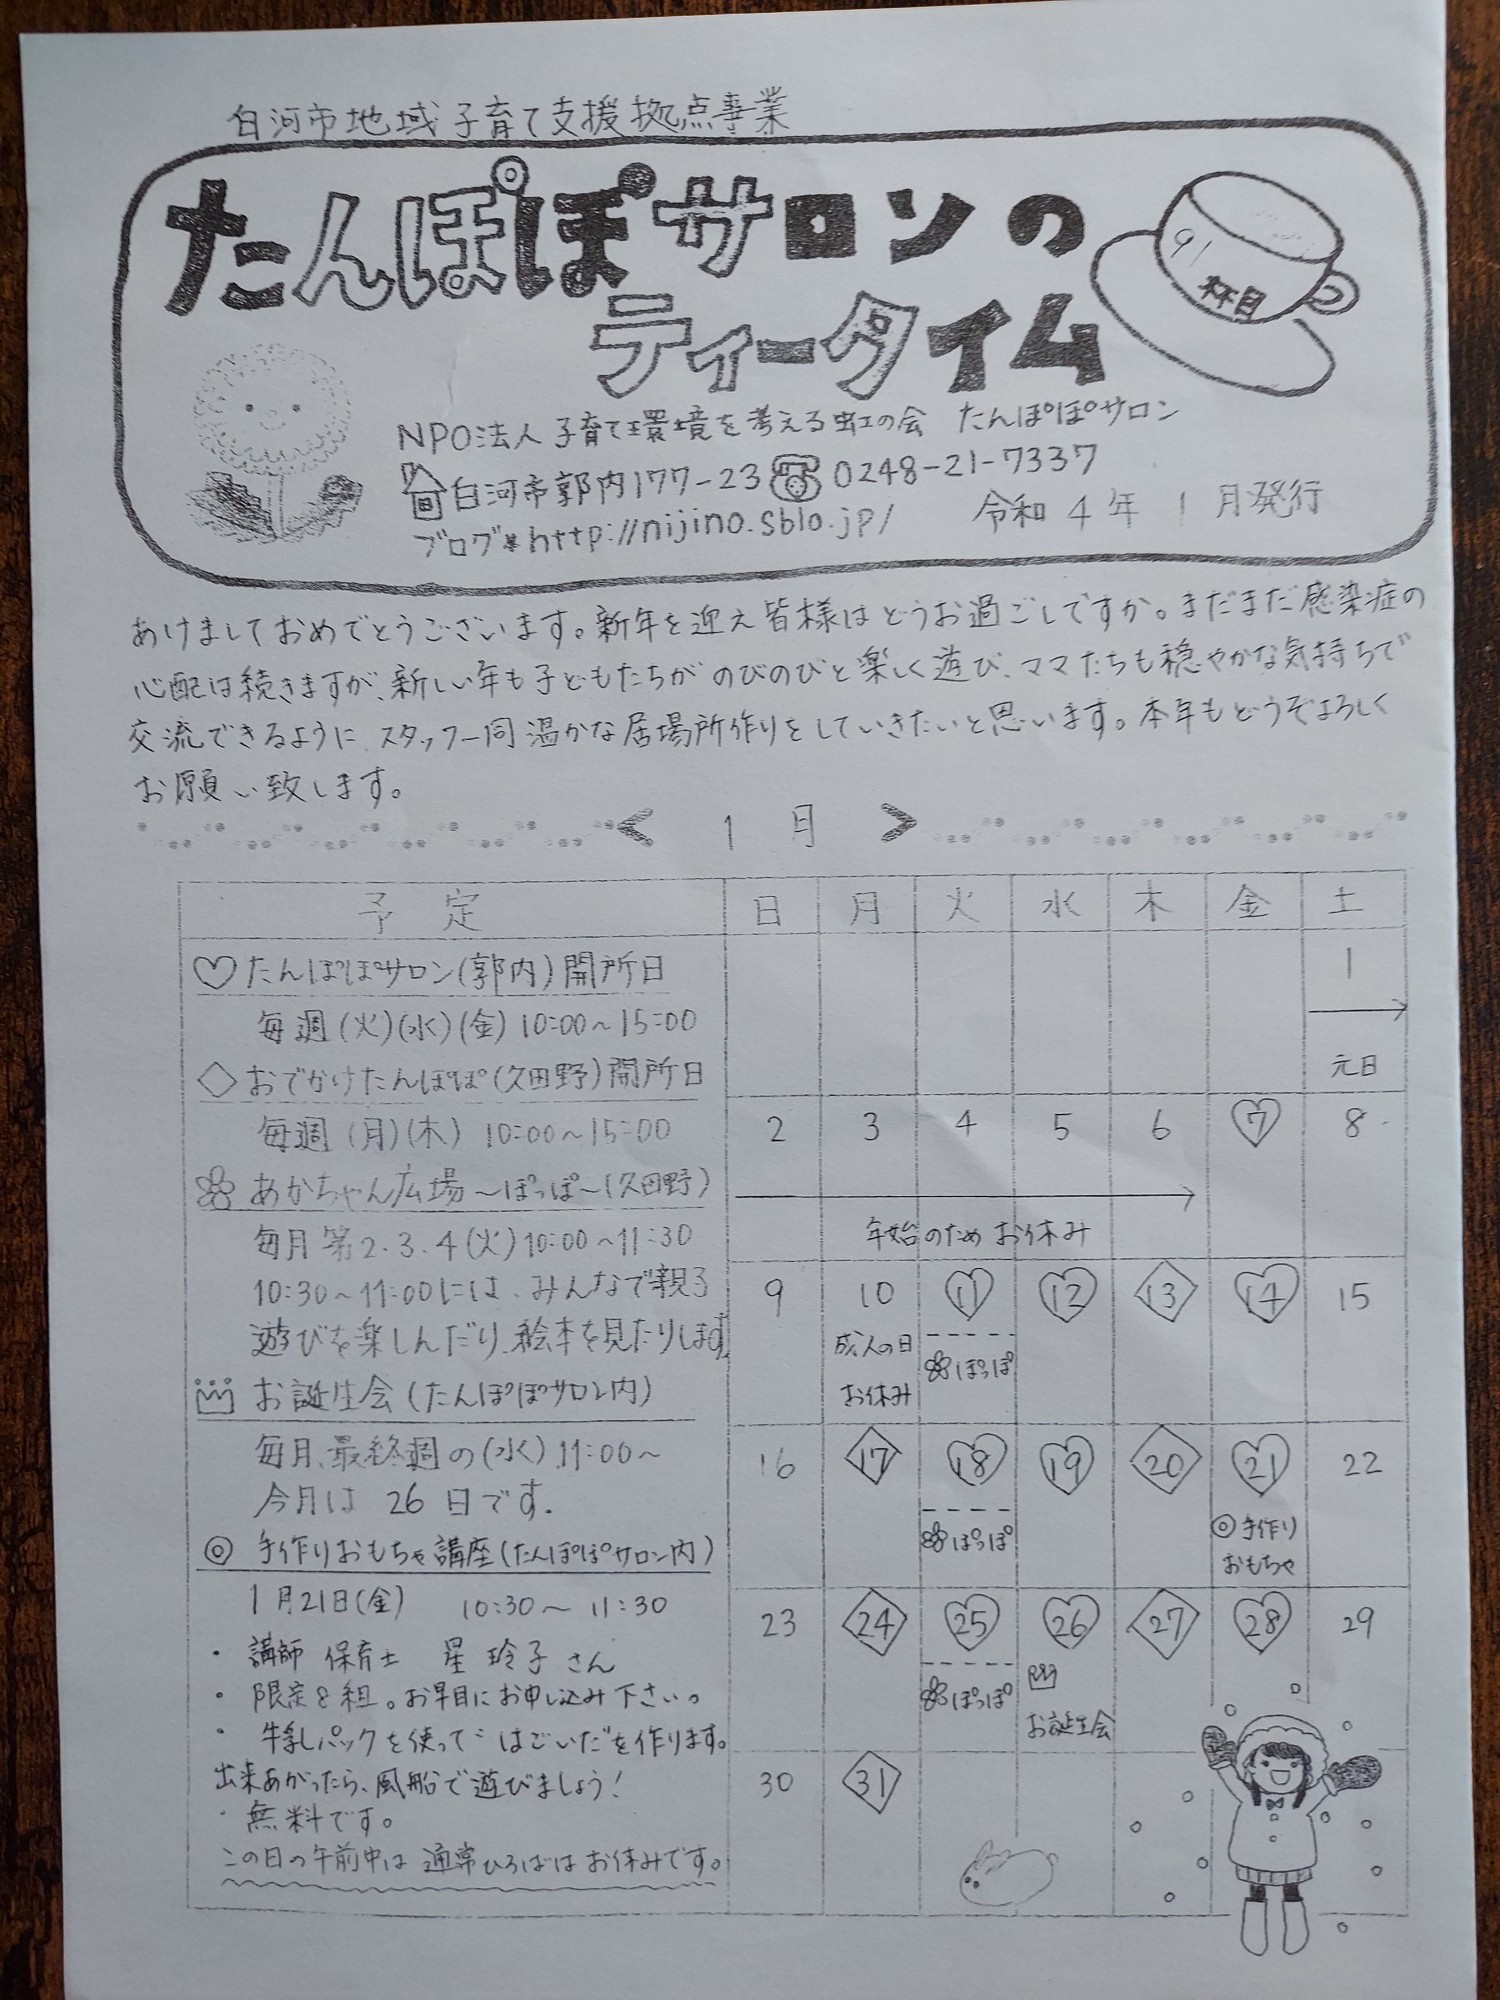 白河市地域子育て支援拠点事業
たんぽぽサロンの
ティータイム
91
杯目
NPO法人 子育て環境を考える虹の会 たんぽぽサロン
白河市郭内177-23 0248-21-7337
ブログ* http://nijino.sblo.jp/ 令和 4 年 1 月発行
あけましておめでとうございます。新年を迎え皆様はどうお過ごしですか。まだまだ感染症の
心配は続きますが、新しい年も子どもたちがのびのびと楽しく遊び、ママたちも穏やかな気持ちで
交流できるように、スタッフ一同温かな居場所作りをしていきたいと思います。本年もどうぞよろしく
お願い致します。
< 1 月 >
予 定 日 月 火 水 木 金 土
♡たんぽぽサロン(郭内)開所日
毎週(火)(水)(金) 10:00~15:00
◇おでかけたんぽぽ(久田野)開所日
毎週(月)(木) 10:00~15:00
あかちゃん広場~ぽっぽ~(久田野)
毎月第2.3.4(火)10:00~11:30
10:30~11:00には、みんなで親子
遊びを楽しんだり、絵本を見たりします。
お誕生会(たんぽぽサロン内)
毎月、最終週の(水) 11:00~
今月は 26 日です.
◎ 手作りおもちゃ講座(たんぽぽサロン内)
1月21日(金) 10:30~11:30
・講師 保育士 星 玲子さん
・限定8組。お早目にお申し込み下さいっ
・牛乳パックを使って"はごいた"を作ります。
出来あがったら、風船で遊びましょう!
・無料です。
この日の午前中は通常ひろばはお休みです。
1
元日
2 3 4 5 6 7 8
年始のためお休み
9 10 11 12 13 14 15
成人の日
お休み
ぽっぽ
16 17 18 19 20 21 22
ぽっぽ
◎手作り
おもちゃ
23 24 25 26 27 28 29
ぽっぽ
お誕生会
30 31